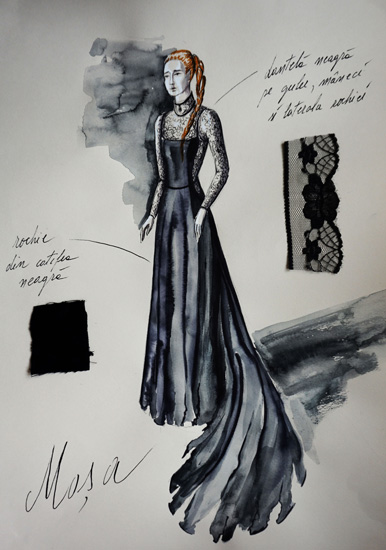 dantelă neagră
pe guler, mâneci
și laterala rochiei
rochie
din catifea
neagră
Mașa